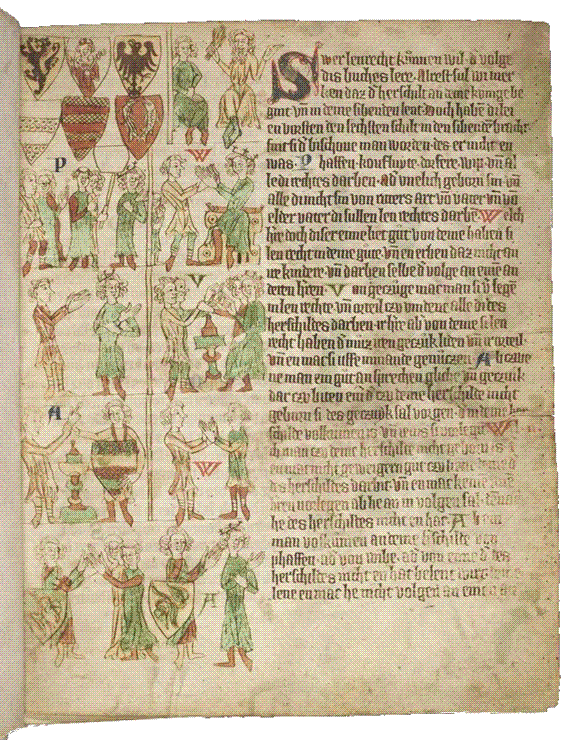 Swer lenrecht kunnen wil · d̾ volge
dis buches lere · Alrest sul wi mer
ken daz d̾ herschilt an deme kunige be
ginnet
vn̄ in deme sibenden lent · Doch habē di lei
en vorsten den sechsten schilt in den sibendē bracht
sint si d̾ bischove man worden · des er nicht en
was · Phaffen · koufluyte · dorfere · wip · vn̄ al
le di rechtes darben · ad̾ unelich geborn sin · vn̄
alle di nicht sin von ritters art vō vater vn̄ vō
elder vater di sullen len rechtes darbē · Welch
h're doch diser enne liet gut von deme haben si
len recht in deme gute · vn̄ en erben daz nicht an
ire kindere · vn̄ darben selbe d̾ volge an eine an
deren h'ren · V an gezuge mac man si
in len rechte · vn̄ orteil czu vindene alle di des
herschiltes darben · ir h're ab von deme si len
recht haben d̾ muz iren gezuk liden vn̄ ir orteil ·
vn̄ en mac si uffe nimande genutzen · Ab czwe
ne man ein gut an sprechen gliche vn̄ gezuk
dar czu biten eini d̾ czu deme herschilte nicht
geborn si des gezuok sal vorgen · d̾ in deme her
schilte volkumen is vn̄ ienis si vorlegit W
ch man czu deme herschilte nicht geborn is
en mac nicht geweigern gut czu
des herschiltes darbit vn̄ en mac keine
h'ren vorlegen ab he an in volgen sal ·
he des herschiltes nicht en hat · Ab ein
man volkumen an deme h'schilte von
phaffen · ad̾ von wibe · ad̾ von eime d̾ des
herschiltes nicht en hat belent wirt
lene en mac he nicht volgen an eine an
P
W
V
A
W
A